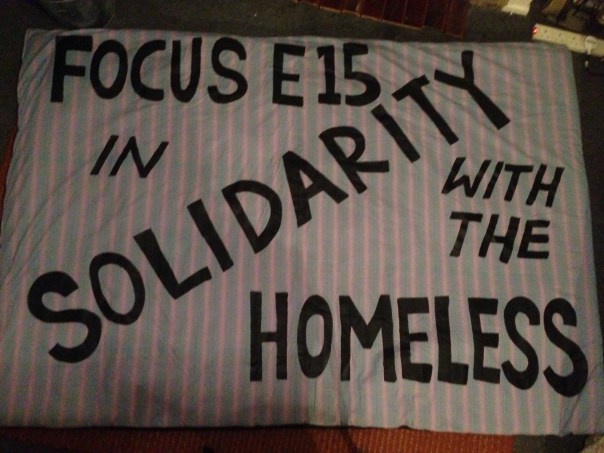 FOCUS E15
IN
SOLIDARITY
WITH
THE
HOMELESS